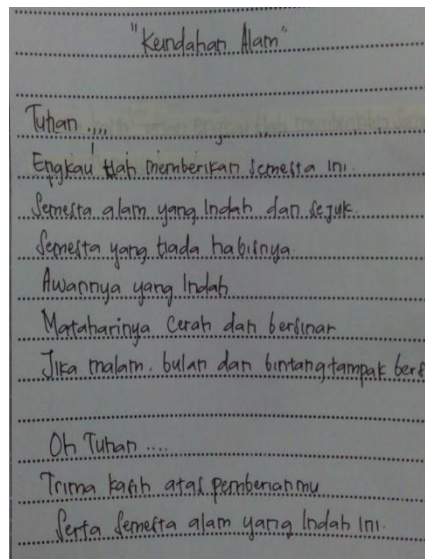 "Keindahan Alam"
Tuhan ....
Engkau tlah memberikan semesta ini.
Semesta alam yang Indah dan sejuk.
Semesta yang tiada habisnya
Awannya yang Indah
Mataharinya Cerah dan bersinar
Jika malam. bulan dan bintang tampak bers
Oh Tuhan ....
Trima kasih atas pemberianmu
Serta Semesta alam yang Indah Ini.